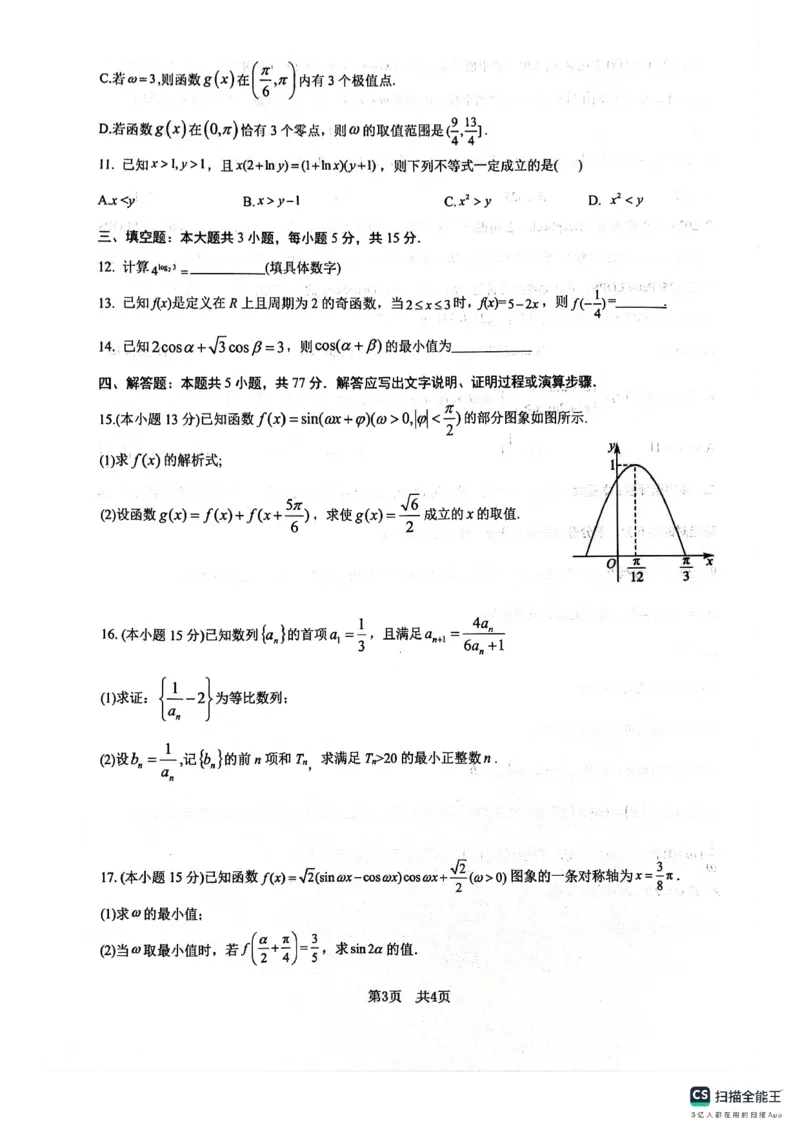 C.若ω=3,则函数g(x)在(π/6,π)内有3个极值点.
D.若函数g(x)在(0,π)恰有3个零点，则ω的取值范围是(9/4,13/4].
11. 已知x>1,y>1，且x(2+ln y)=(1+ln x)(y+1)，则下列不等式一定成立的是( )
A.x<y B.x>y-1 C.x²>y D. x²<y
三、填空题：本大题共3小题，每小题5分，共15分.
12. 计算4^{log₂3}=________(填具体数字)
13. 已知f(x)是定义在R上且周期为2的奇函数，当2≤x≤3时，f(x)=5-2x，则f(-1/4)=______.
14. 已知2cosα+√3cosβ=3，则cos(α+β)的最小值为________
四、解答题：本题共5小题，共77分．解答应写出文字说明、证明过程或演算步骤.
15.(本小题13分)已知函数f(x)=sin(ωx+φ)(ω>0,|φ|<π/2)的部分图象如图所示.
(1)求f(x)的解析式;
(2)设函数g(x)=f(x)+f(x+5π/6)，求使g(x)=√6/2成立的x的取值.
y
1
O π/12 π/3 x
16.(本小题15分)已知数列{aₙ}的首项a₁=1/3，且满足aₙ₊₁=4aₙ/(6aₙ+1)
(1)求证：{1/aₙ-2}为等比数列;
(2)设bₙ=1/aₙ,记{bₙ}的前n项和Tₙ，求满足Tₙ>20的最小正整数n.
17.(本小题15分)已知函数f(x)=√2(sinωx-cosωx)cosωx+√2/2(ω>0)图象的一条对称轴为x=3/8π.
(1)求ω的最小值;
(2)当ω取最小值时，若f(α/2+π/4)=3/5，求sin2α的值.
第3页 共4页
CS 扫描全能王
3亿人都在用的扫描App